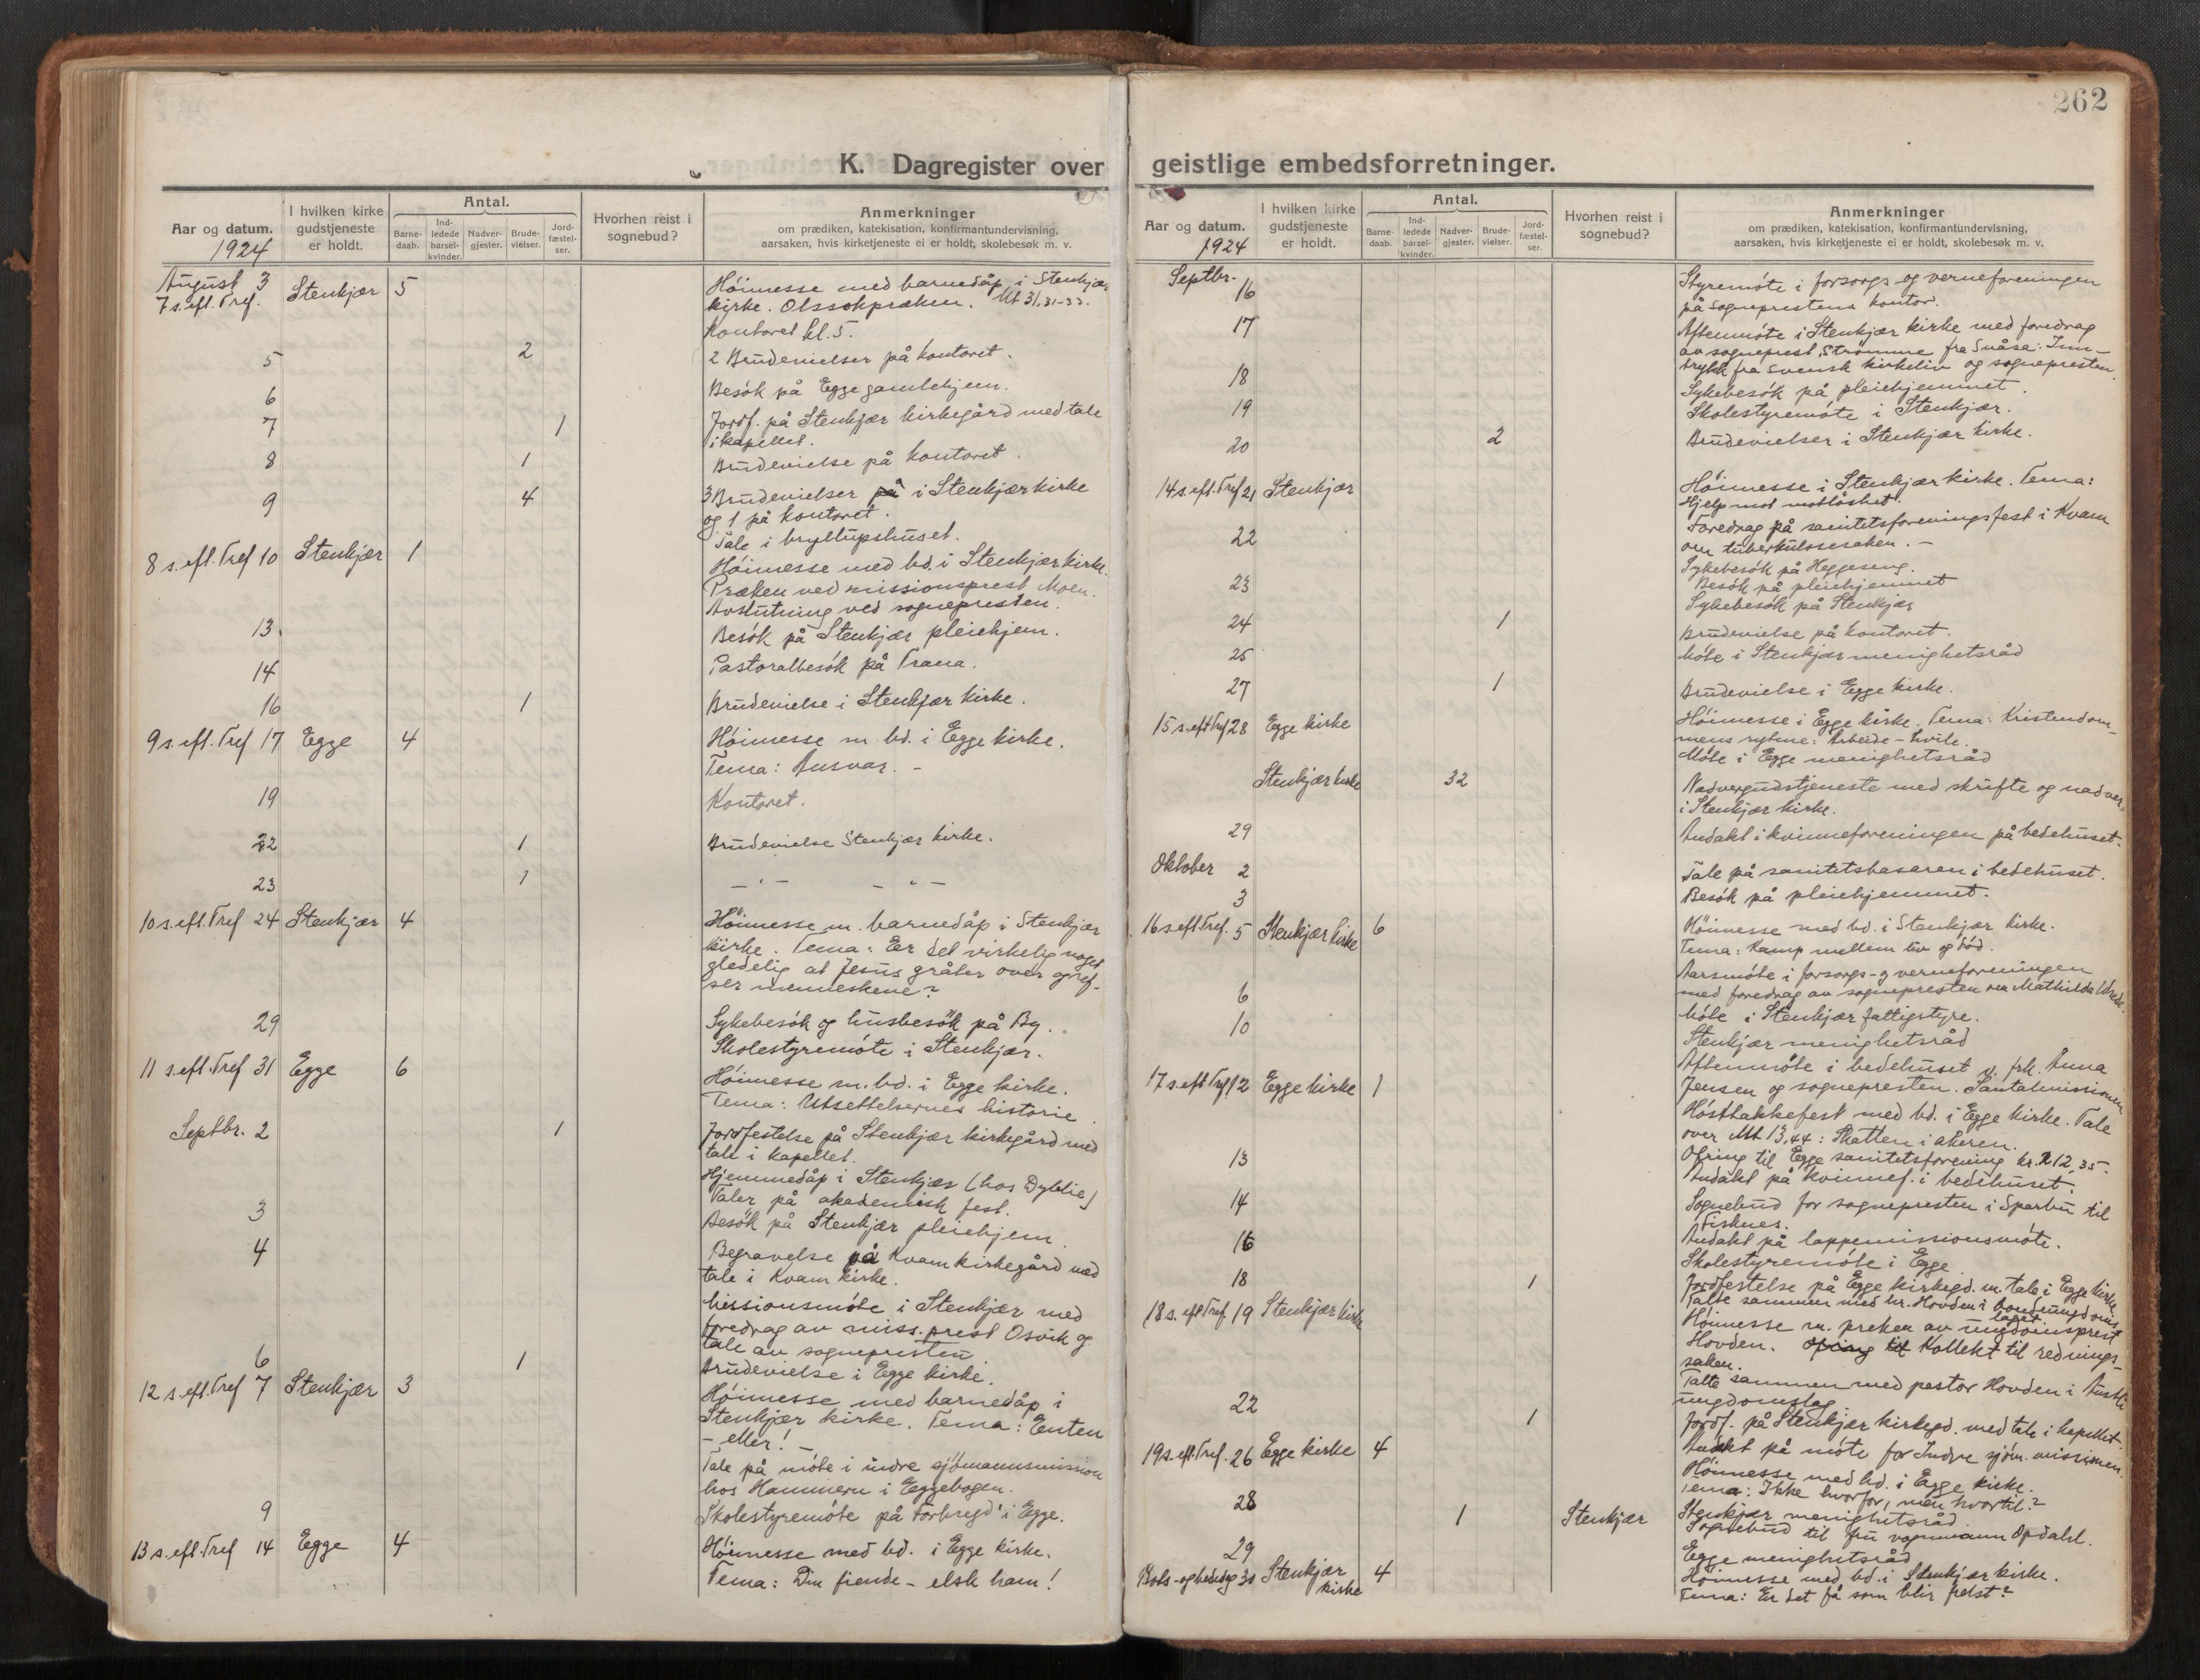 262
K. Dagregister over geistlige embedsforretninger.
Aar og datum.
1924
I hvilken kirke gudstjeneste er holdt.
Antal.
Barne-daab.
Ind-ledede barsel-kvinder.
Nadver-gjester.
Brude-vielser.
Jord-fæstel-ser.
Hvorhen reist i sognebud?
Anmerkninger
om prædiken, katekisation, konfirmantundervisning,
aarsaken, hvis kirketjeneste ei er holdt, skolebesøk m. v.
August 3 Stenkjær 5 Höimesse med barnedåp i Stenkjær
7 s. eft. Tref. kirke. Olssokpræken. Mt 31,31-33.
Kontoret kl. 5.
5 2 2 Brudevielser på kontoret.
6 Besök på Egge gamlehjem.
7 1 Jordf. på Stenkjær kirkegård med tale
i kapellet.
8 1 Brudevielse på kontoret.
9 4 3 Brudevielser på i Stenkjær kirke
og 1 på kontoret.
Tale i bryllupshuset.
8 s. eft. Tref 10 Stenkjær 1 Höimesse med bd. i Stenkjær kirke.
Præken ved missionsprest Moen.
Avslutning ved sognepresten.
13. Besök på Stenkjær pleiehjem.
14 Pastoralbesök på Trana.
16 1 Brudevielse i Stenkjær kirke.
9 s. eft. Tref 17 Egge 4 Höimesse m. bd. i Egge kirke.
Tema: Ansvar. –
19 Kontoret.
22 1 Brudevielse Stenkjær kirke.
23 1 – " – – " –
10 s. eft. Tref 24 Stenkjær 4 Höimesse m. barnedåp i Stenkjær
kirke. Tema: Er det virkelig noget
gledelig at Jesus gråter over og ref-
ser menneskene?
29 Sykebesök og husbesök på By.
Skolestyremöte i Stenkjær.
11 s. eft. Tref 31 Egge 6 Höimesse m. bd. i Egge kirke.
Tema: Utsettelsernes historie.
Septbr. 2 1 Jordfestelse på Stenkjær kirkegård med
tale i kapellet.
Hjemmedåp i Stenkjær (hos Dyblie)
Taler på akademisk fest.
3 Besök på Stenkjær pleiehjem.
4 Begravelse på Kvam kirkegård med
tale i Kvam kirke.
Missionsmöte i Stenkjær med
foredrag av miss.prest Osvik og
tale av sognepresten
6 1 Brudevielse i Egge kirke.
12 s. eft. Tref 7 Stenkjær 3 Höimesse med barnedåp i
Stenkjær kirke. Tema: Enten
– eller! –
Tale på möte i indre sjömannsmission
hos Hammern i Eggebogen.
9 Skolestyremöte på Forbregd i Egge.
13 s. eft. Tref 14 Egge 4 Höimesse med bd. i Egge kirke.
Tema: Din fiende – elsk ham!
Aar og datum.
1924
I hvilken kirke gudstjeneste er holdt.
Antal.
Barne-daab.
Ind-ledede barsel-kvinder.
Nadver-gjester.
Brude-vielser.
Jord-fæstel-ser.
Hvorhen reist i sognebud?
Anmerkninger
om prædiken, katekisation, konfirmantundervisning,
aarsaken, hvis kirketjeneste ei er holdt, skolebesøk m. v.
Septbr. 16 Styremöte i forsorgs- og verneforeningen
på sogneprestens kontor.
17 Aftenmöte i Stenkjær kirke med foredrag
av sogneprest Strömme fra Snåsa: Inn-
trykk fra svensk kirkeliv og sognepresten.
18 Sykebesök på pleiehjemmet.
19 Skolestyremöte i Stenkjær.
20 2 Brudevielser i Stenkjær kirke.
14 s. eft. Tref 21 Stenkjær Höimesse i Stenkjær kirke. Tema:
Hjelp mot motlöshet.
Foredrag på sanitetsforeningsfest i Kvam
22 om tuberkulosesaken. –
Sykebesök på Heggeseng.
23 Besök på pleiehjemmet
Sykebesök på Stenkjær
24 1 Brudevielse på kontoret.
25 Möte i Stenkjær menighetsråd
27 1 Brudevielse i Egge kirke.
15 s. eft Tref 28 Egge kirke Höimesse i Egge kirke. Tema: Kristendom-
mens rytme: Arbeide – hvile.
Möte i Egge menighetsråd
Stenkjær kirke 32 Nadvergudstjeneste med skrifte og nadver
i Stenkjær kirke.
29 Andakt i kvinneforeningen på bedehuset.
Oktober 2 Tale på sanitetsbasaren i bedehuset.
3 Besök på pleiehjemmet.
16 s. eft. Tref. 5 Stenkjær kirke 6 Höimesse med bd. i Stenkjær kirke.
Tema: Kamp mellem liv og död.
Aarsmöte i forsorgs- og verneforeningen
6 med foredrag av sognepresten om Mathilda Wrede.
Möte i Stenkjær fattigstyre.
10 Stenkjær menighetsråd
Aftenmöte i bedehuset v. frk. Anna
Jensen og sognepresten. Santalmissionen
17 s. eft Tref 12 Egge kirke 1 Hösttakkefest med bd. i Egge kirke. Tale
over Mt 13,44: Skatten i akeren.
Ofring til Egge sanitetsforening kr. 212,35.
13 Andakt på kvinnef. i bedehuset.
14 Sognebud for sognepresten i Sparbu til
Fisknes.
16 Andakt på lappemissionsmöte.
Skolestyremöte i Egge
18 1 Jordfestelse på Egge kirkegd. m. tale i Egge kirke
Talte sammen med hr. Hovden i bondeungdoms-
laget
18 s. eft Tref. 19 Stenkjær kirke Höimesse m. preken av ungdomsprest
Hovden. Ofring til Kollekt til rednings-
saken.
Talte sammen med pastor Hovden i
ungdomslag.
22 1 Jordf. på Stenkjær kirkegd. med tale i kapellet.
Andakt på möte for Indre sjöm. missionen.
19 s. eft. Tref. 26 Egge kirke 4 Höimesse med bd. i Egge kirke.
Tema: Ikke hvorfor, men hvortil?
28 Stenkjær menighetsråd
1 Stenkjær Sognebud til fru vognmann Opdahl.
29 Egge menighetsråd
Bots- og bededag 30 Stenkjær kirke 4 Höimesse med bd. i Stenkjær kirke.
Tema: Er det få som blir frelst?